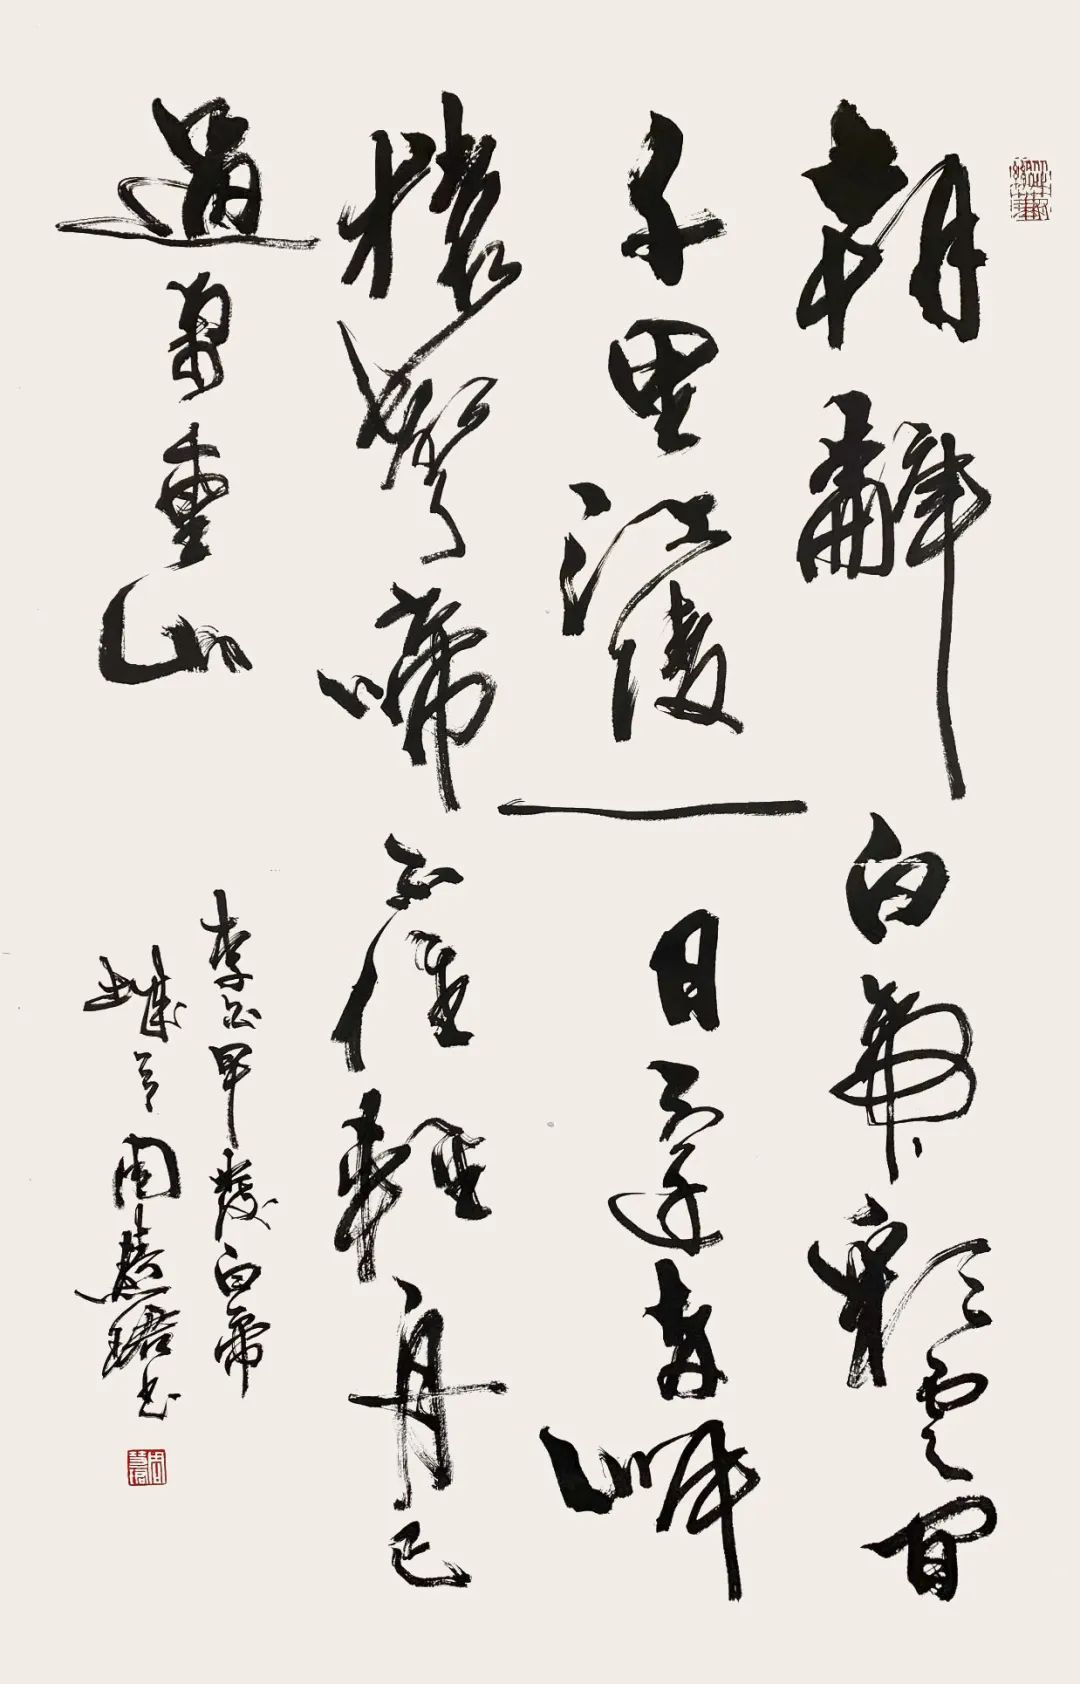 朝辭白帝彩雲間
千里江陵一日還兩岸
猿聲啼不住輕舟已
過萬重山
李白早發白帝
城 周慧珺書
周慧珺